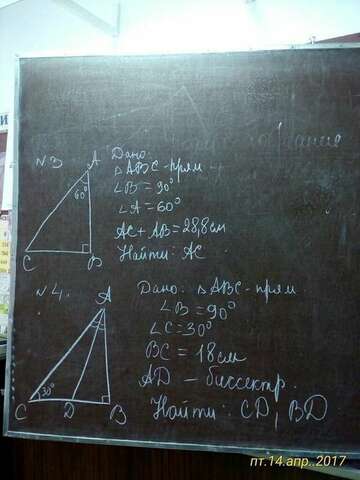 N 3
Дано:
△ABC - прям
∠B = 90°
∠A = 60°
AC + AB = 28,8 см
Найти: AC
A
60°
C
B
N 4.
Дано: △ABC - прям.
∠B = 90°
∠C = 30°
BC = 18 см
AD - биссектр.
Найти: CD, BD
A
30°
C
D
B
пт.14.апр..2017